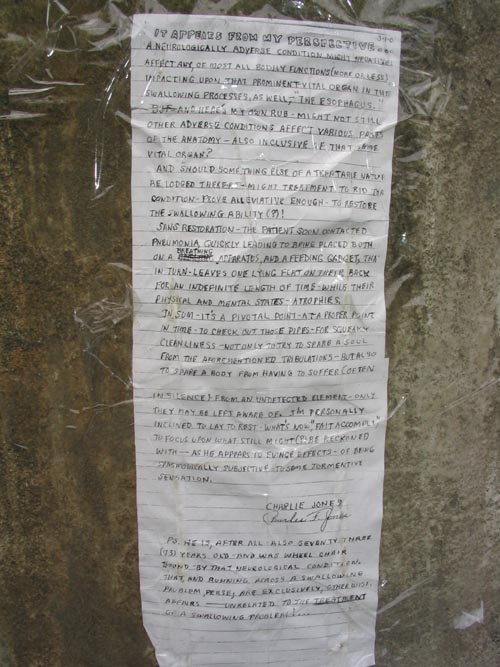 IT APPEARS FROM MY PERSPECTIVE...
A NEUROLOGICALLY ADVERSE CONDITION MIGHT NEGATIVELY
AFFECT ANY, OF MOST ALL BODILY FUNCTIONS (MORE OR LESS)
IMPACTING UPON THAT PROMINENT VITAL ORGAN IN THE
SWALLOWING PROCESSES, AS WELL, "THE ESOPHAGUS."
BUT - AND HERE'S MY OWN RUB - MIGHT NOT STILL
OTHER ADVERSE CONDITIONS AFFECT VARIOUS PARTS
OF THE ANATOMY - ALSO INCLUSIVE IF THAT SAME
VITAL ORGAN?
AND SHOULD SOMETHING ELSE OF A TREATABLE NATURE
BE LODGED THERE - MIGHT TREATMENT TO RID THE
CONDITION - PROVE ALLEVIATIVE ENOUGH - TO RESTORE
THE SWALLOWING ABILITY (?)!
SANS RESTORATION - THE PATIENT SOON CONTACTED
PNEUMONIA, QUICKLY LEADING TO BEING PLACED BOTH
ON A BREATHING APPARATUS, AND A FEEDING GADGET, THAT
IN TURN - LEAVES ONE LYING FLAT ON THEIR BACK
FOR AN INDEFINITE LENGTH OF TIME - WHILE THEIR
PHYSICAL AND MENTAL STATES - ATROPHIES.
IN SUM - IT'S A PIVOTAL POINT - AT A PROPER POINT
IN TIME - TO CHECK OUT THOSE PIPES - FOR SQUEAKY
CLEANLINESS - NOT ONLY TO TRY TO SPARE A SOUL
FROM THE AFOREMENTIONED TRIBULATIONS - BUT ALSO
TO SPARE A BODY FROM HAVING TO SUFFER (OFTEN
IN SILENCE) FROM AN UNDETECTED ELEMENT - ONLY
THEY MAY BE LEFT AWARE OF. I'M PERSONALLY
INCLINED TO LAY TO REST - WHAT'S NOW, "FAIT ACCOMPLI,"
TO FOCUS UPON WHAT STILL MIGHT (?) BE RECKONED
WITH - AS HE APPEARS TO EVINGE EFFECTS - OF BEING
SPASMONICALLY SUBJECTIVE TO SOME TORMENTIVE
SENSATION.
CHARLIE JONES
Charles F. Jones
PS. HE IS, AFTER ALL, ALSO SEVENTY THREE
(73) YEARS OLD - AND WAS WHEEL CHAIR
BOUND BY THAT NEUROLOGICAL CONDITION.
THAT, AND RUNNING ACROSS A SWALLOWING
PROBLEM, PERSE, ARE EXCLUSIVELY, OTHERWISE,
AFFAIRS — UNRELATED TO THE TREATMENT
OF A SWALLOWING PROBLEM!...